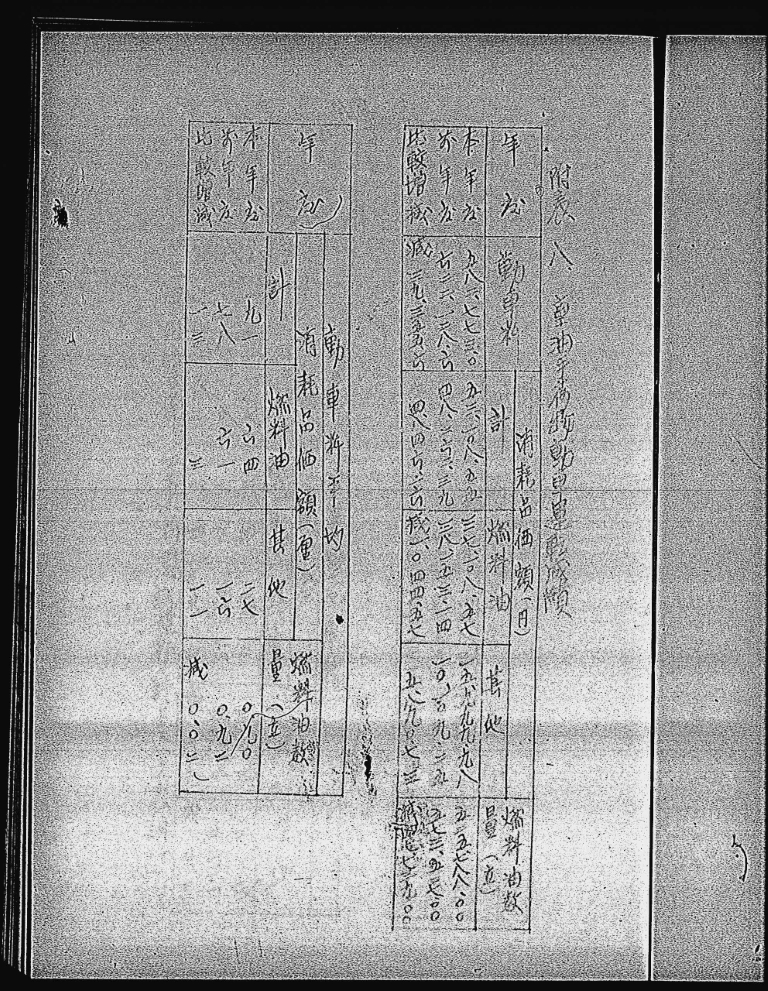 附表 八、 重油手荷物動車運転成績
年度 動車粁 消耗品価額(円)
計 燃料油 其他 燃料油数量(立)
本年度 五八一、七七三.〇 五三、一〇八.五五 三七、一〇八.五七 一五、九九九.九八 五三五、七八八.〇〇
前年度 六二一、一二八.六 四八、二六二.三九 三八、一五三.一四 一〇、一〇九.二五 五七三、五一七.〇〇
比較増減 減 三九、三五五.六 四、八四六.一六 減一、〇四四.五七 五、八九〇.七三 減三七、七二九.〇〇
年度 動車粁平均
消耗品価額(厘) 燃料油数量(立)
計 燃料油 其他
本年度 九一 六四 二七 〇.九〇
前年度 七八 六一 一六 〇.九二
比較増減 一三 三 一一 減 〇.〇二